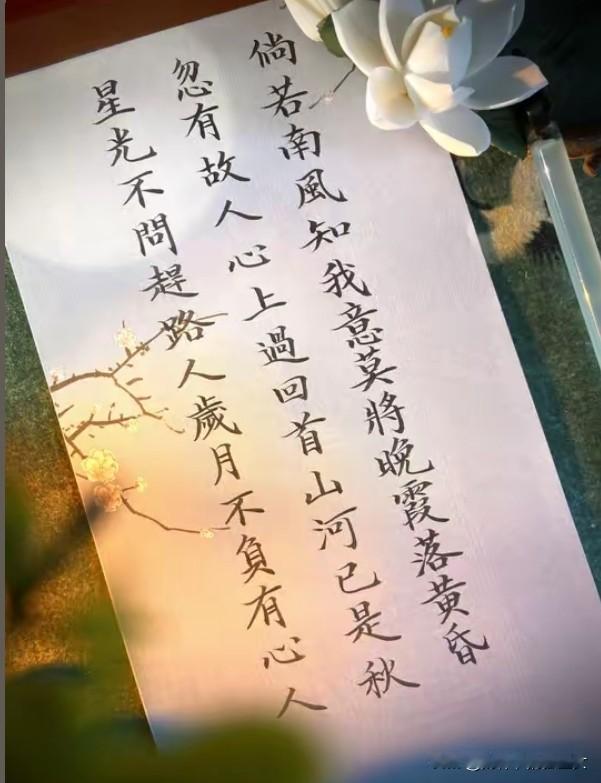 倘若南風知我意莫將晚霞落黃昏
忽有故人心上過回首山河已是秋
星光不問趕路人歲月不負有心人